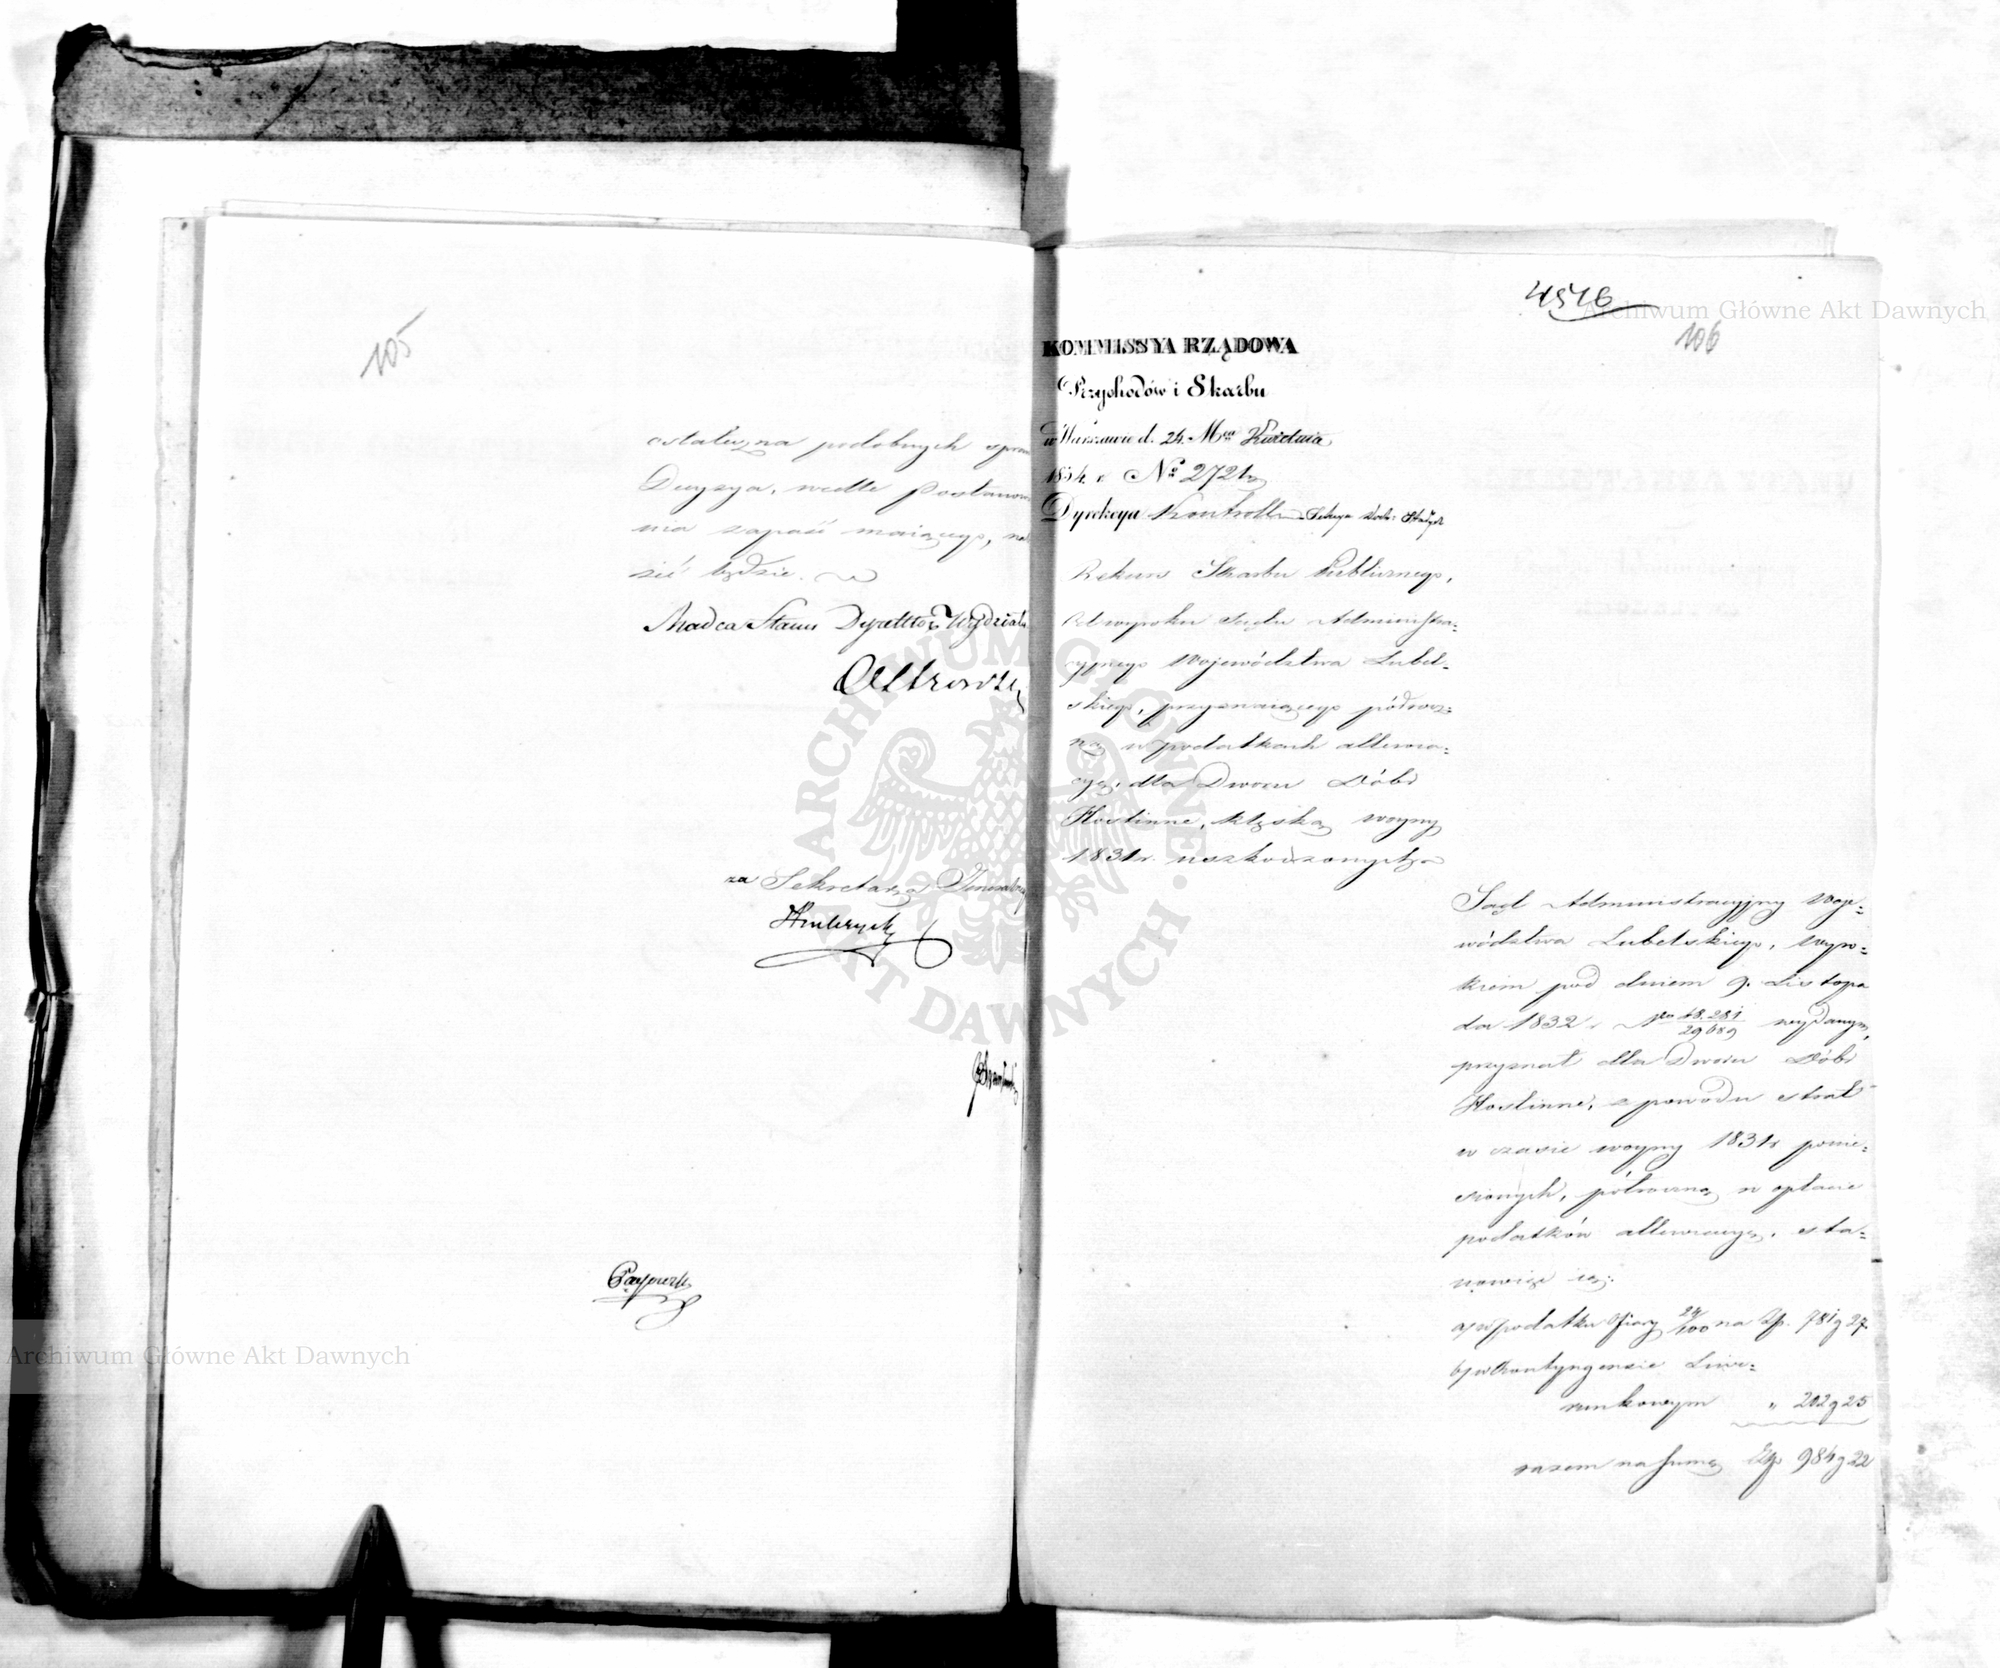 105
ostateczna podobnych spraw
Decyzya, wedle Postanowie
nia zapaść mającego, na
zić będzie.
Radca Stanu Dyrektor Wydziału
Ostrowski
za Sekretarza Jeneralnego
4516
106
KOMMISSYA RZĄDOWA
Przychodów i Skarbu
w Warszawie d. 24. Mca Kwietnia
1834. r. No 2721
Dyrekcya Kontroll Sekcya Docho: Stałych
Rekurs Skarbu Publicznego,
od wyroku Sądu Administra=
cyjnego Województwa Lubel=
skiego, przyznaiącego półrocz=
ną w podatkach allewia=
cyą, dla Dworu Dóbr
Hostinne, klęską woyny
1831 r. uszkodzonych
Sąd Administracyjny Woje=
wództwa Lubelskiego, wyro=
kiem pod dniem 9. Listopa
da 1832 r. No 48.281/29689 wydanym,
przyznał dla Dworu Dóbr
Hostinne, z powodu strat
w czasie woyny 1831 r. ponie=
sionych, półroczną w opłacie
podatków allewiacyą, sta=
nowiącą:
a) w podatku Ofiary 24/100 na Zp. 781 g 27.
b) w Kontyngensie Liwe=
runkowym " 202 g 25
razem na summę Zlp 984 g 22
ARCHIWUM GŁÓWNE AKT DAWNYCH
Archiwum Główne Akt Dawnych
Archiwum Główne Akt Dawnych